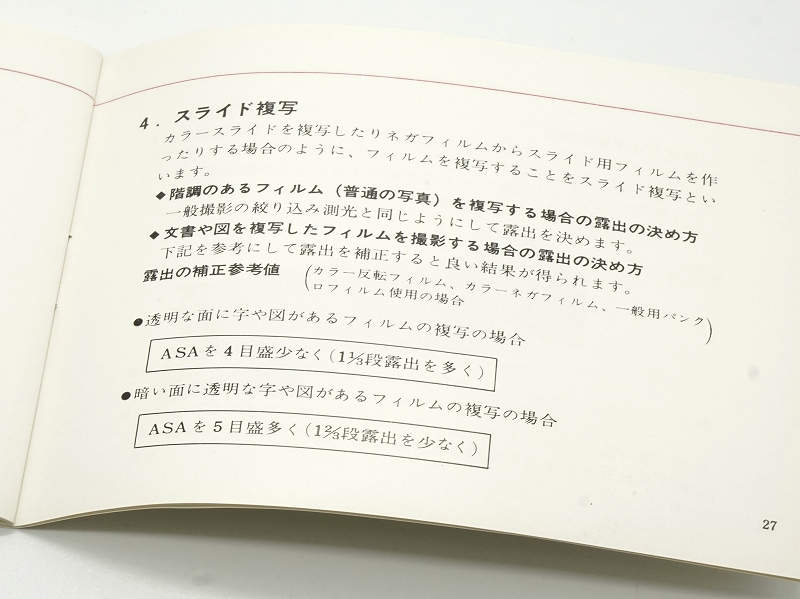 4. スライド複写
カラースライドを複写したりネガフィルムからスライド用フィルムを作
ったりする場合のように、フィルムを複写することをスライド複写とい
います。
◆階調のあるフィルム（普通の写真）を複写する場合の露出の決め方
一般撮影の絞り込み測光と同じようにして露出を決めます。
◆文書や図を複写したフィルムを撮影する場合の露出の決め方
下記を参考にして露出を補正すると良い結果が得られます。
露出の補正参考値 (カラー反転フィルム、カラーネガフィルム、一般用パンク
ロフィルム使用の場合)
●透明な面に字や図があるフィルムの複写の場合
ASAを4目盛少なく(1⅓段露出を多く)
●暗い面に透明な字や図があるフィルムの複写の場合
ASAを5目盛多く(1⅔段露出を少なく)
27